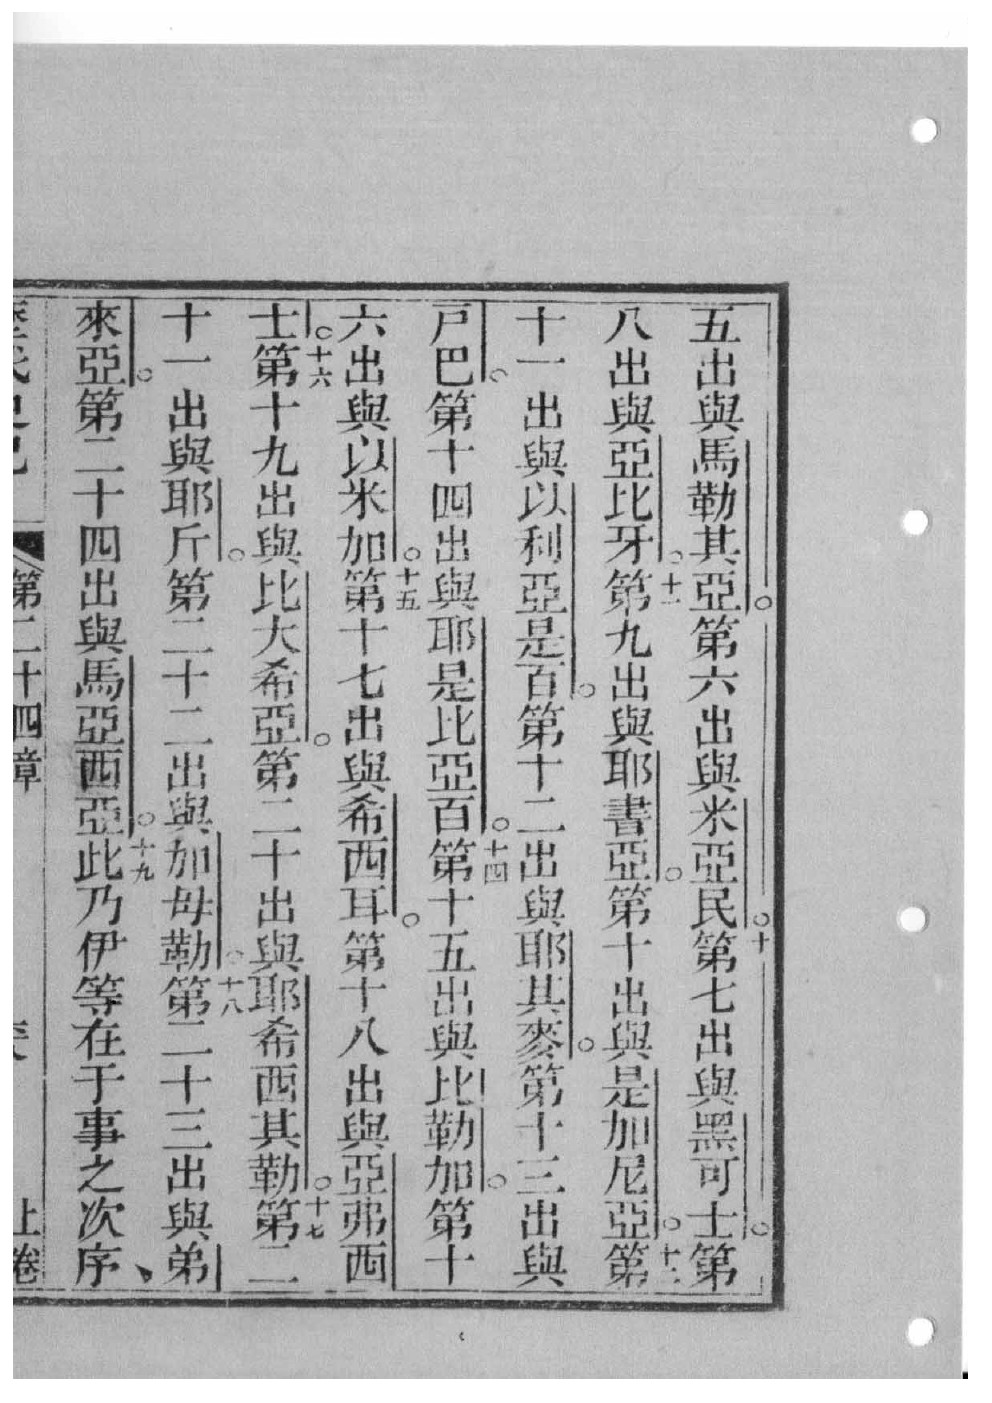 五出與馬勒其亞。第六出與米亞民。十第七出與黑可士。第
八出與亞比牙。十一第九出與耶書亞。第十出與是加尼亞。十二第
十一出與以利亞是百。第十二出與耶其麥。第十三出與
戸巴。第十四出與耶是比亞百。十四第十五出與比勒加。第十
六出與以米加。十五第十七出與希西耳。第十八出與亞弗西
士。十六第十九出與比大希亞。第二十出與耶希西其勒。十七第二
十一出與耶斤。第二十二出與加母勒。十八第二十三出與弟
來亞。第二十四出與馬亞西亞。十九此乃伊等在于事之次序、
第二十四章 上卷